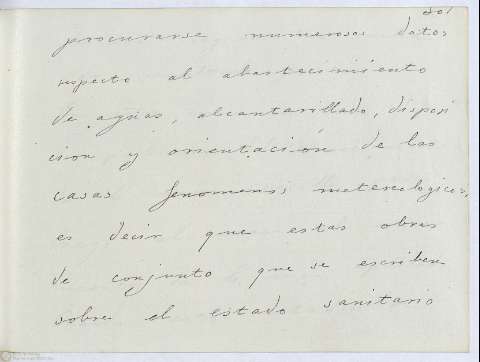 301
procurarse numerosos datos
respecto al abastecimiento
de aguas, alcantarillado, dispoci
cion y orientación de las
casas fenomenos metereologicos,
es decir que estas obras
de conjunto que se escriben
sobre el estado sanitario